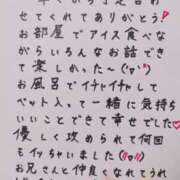 せてくれてありがとう!
お部屋でアイス食べな
がらいろんなお話できて
て楽しかった〜(*´▽`*)
お風呂でイチャイチャして
ベット入って一緒に気持ち
いいことできて幸せでした♥
優しく攻められて何回
もイッちゃいました(//▽//)
お兄さんと仲良くなれてうれ